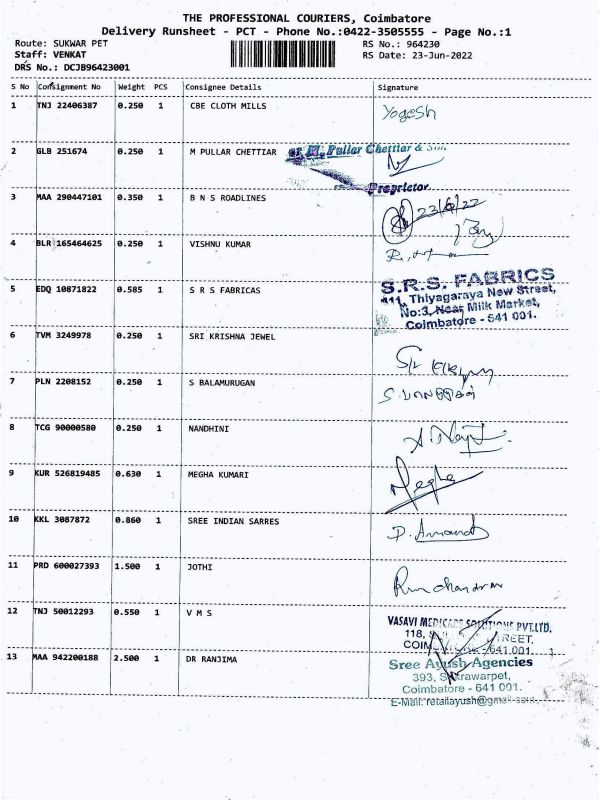 THE PROFESSIONAL COURIERS, Coimbatore
Delivery Runsheet - PCT - Phone No.:0422-3505555 - Page No.:1
Route: SUKWAR PET RS No.: 964230
Staff: VENKAT RS Date: 23-Jun-2022
DRS No.: DCJB96423001
S No Consignment No Weight PCS Consignee Details Signature
1 TNJ 22406387 0.250 1 CBE CLOTH MILLS Yogesh
2 GLB 251674 0.250 1 M PULLAR CHETTIAR Pullar Chettiar &
Proprietor
3 MAA 290447101 0.350 1 B N S ROADLINES 23/6/22
4 BLR 165464625 0.250 1 VISHNU KUMAR
5 EDQ 10871822 0.585 1 S R S FABRICAS S.R.S. FABRICS
411, Thiyagaraya New Street,
No:3, Near Milk Market,
Coimbatore - 641 001.
6 TVM 3249978 0.250 1 SRI KRISHNA JEWEL
7 PLN 2208152 0.250 1 S BALAMURUGAN
8 TCG 90000580 0.250 1 NANDHINI
9 KUR 526819485 0.630 1 MEGHA KUMARI Megha
10 KKL 3087872 0.860 1 SREE INDIAN SARRES D. Anand
11 PRD 600027393 1.500 1 JOTHI
12 TNJ 50012293 0.550 1 V M S VASAVI MEDICARE SOLUTIONS PVT.LTD.
118, STREET,
641 001.
13 MAA 942200188 2.500 1 DR RANJIMA Sree Ayush Agencies
393, Sukrawarpet,
Coimbatore - 641 001.
E-Mail: retailayush@gmail.com